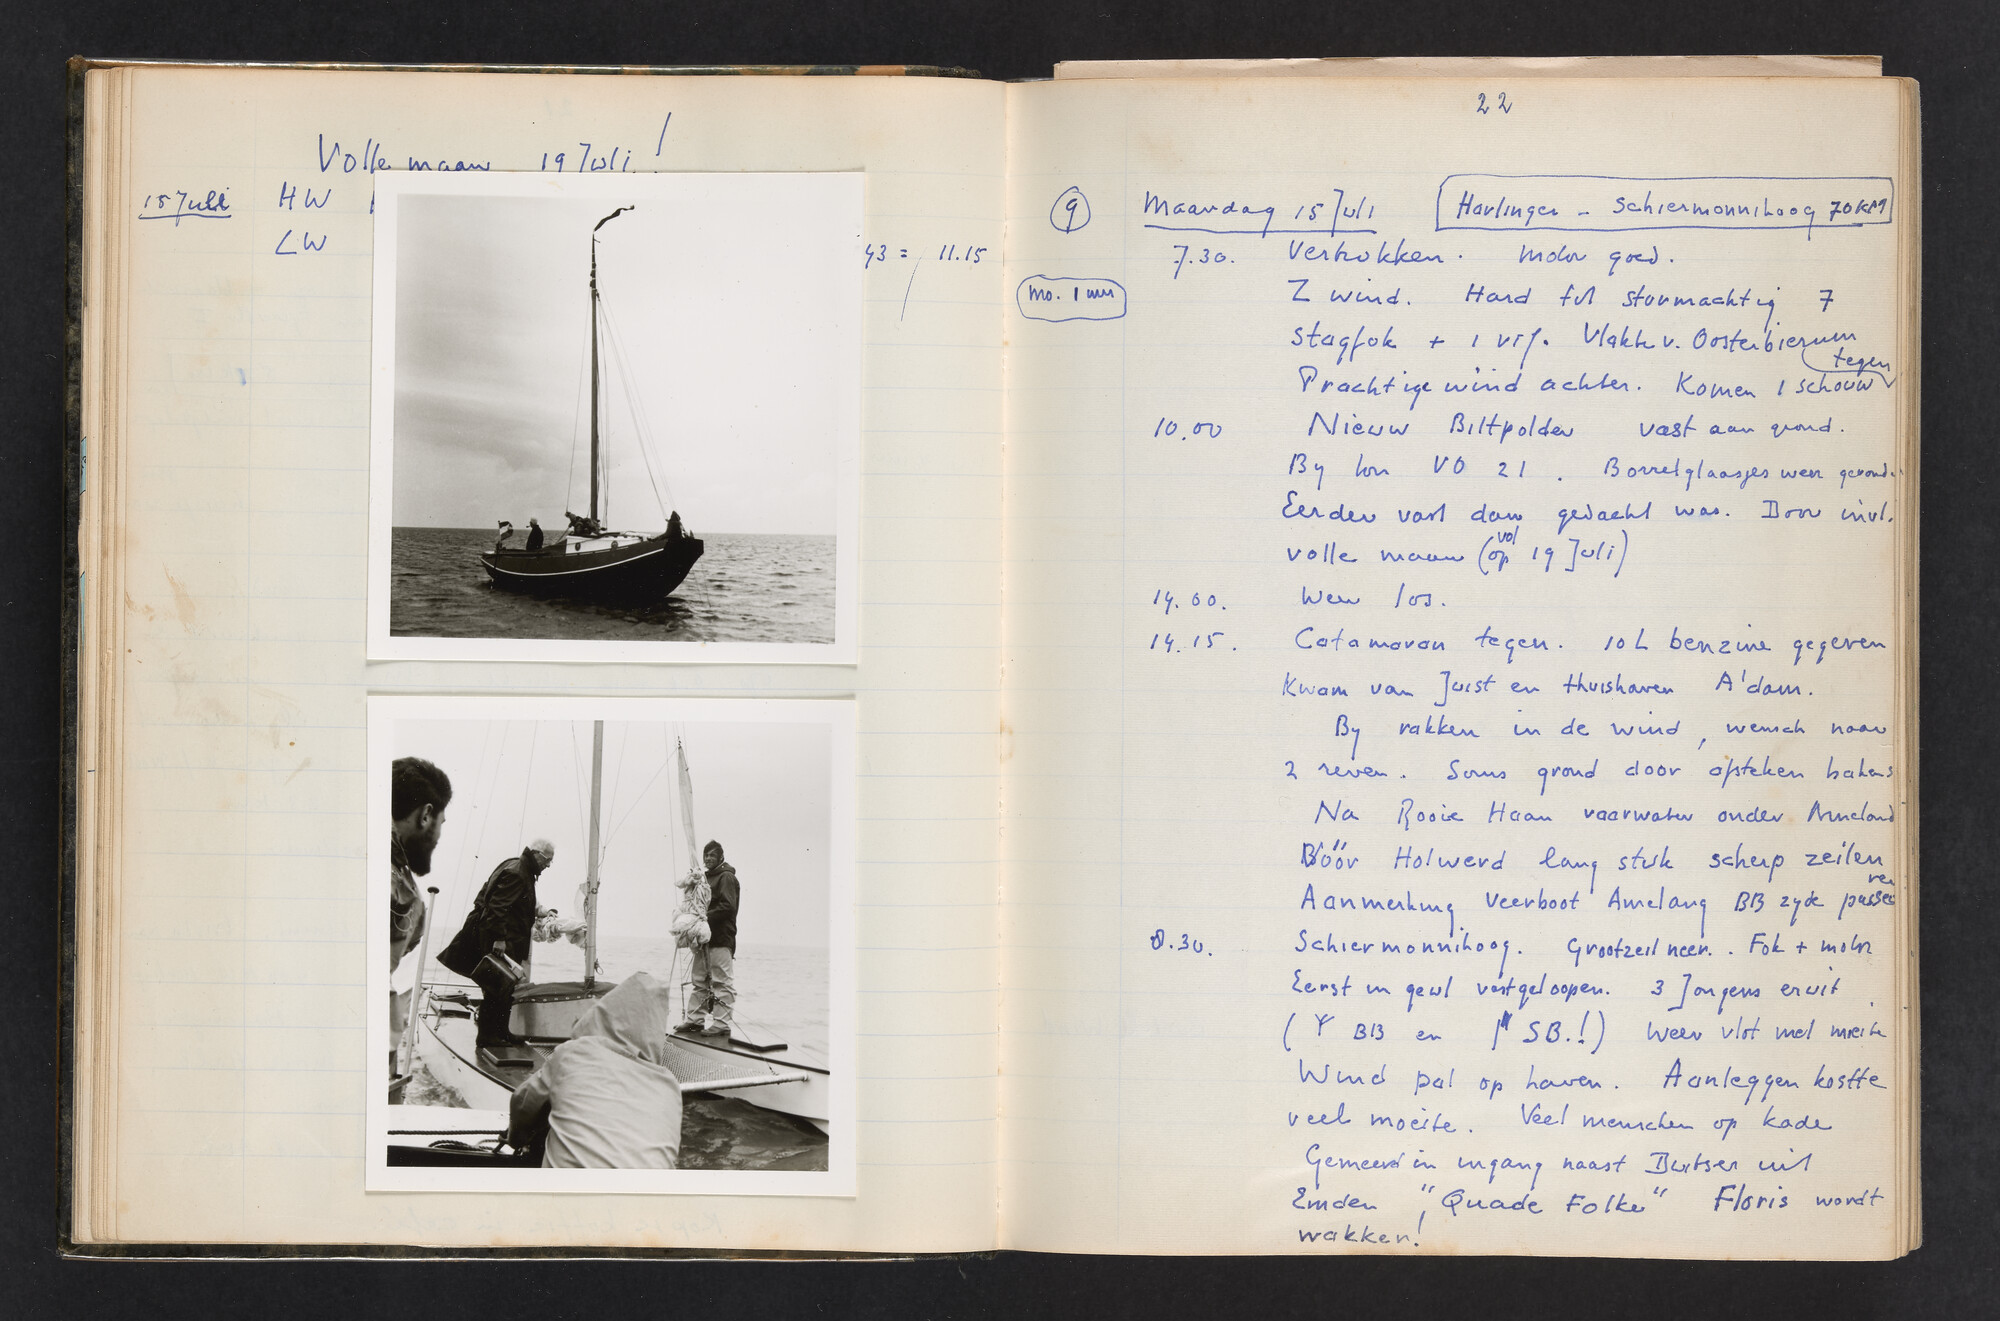 Volle maan 19 Juli!
15 Juli HW
LW 43 = 11.15
22
9 Maandag 15 Juli Harlingen - Schiermonnikoog 70 KM
7.30. Vertrokken. Motor goed.
Mo. 1 uur Z wind. Hard tot stormachtig 7
Stagfok + 1 rif. Vlakte v. Oosterbierum
tegen
Prachtige wind achter. Komen 1 schouw
10.00 Nieuw Biltpolder vast aan grond.
By ton VO 21. Borrelglaasjes weer gevond.
Eerder vast dan gedacht was. Door invl.
volle maan (vol op 19 Juli)
14.00. Weer los.
14.15. Catamaran tegen. 10 L benzine gegeven
Kwam van Juist en thuishaven A'dam.
By rakken in de wind, wensch naar
2 reven. Soms grond door opsteken bakens
Na Rooie Haan vaarwater onder Ameland
Vóór Holwerd lang stuk scherp zeilen
Aanmerking veerboot Amelang BB zyde passeeren
8.30. Schiermonnikoog. Grootzeil neer. Fok + motor
Eerst in geul vastgeloopen. 3 Jongens eruit
( BB en SB.!) Weer vlot met moeite
Wind pal op haven. Aanleggen kostte
veel moeite. Veel menschen op kade
Gemeerd in ingang naast Duitser uit
Emden "Quade Folke" Floris wordt
wakker!